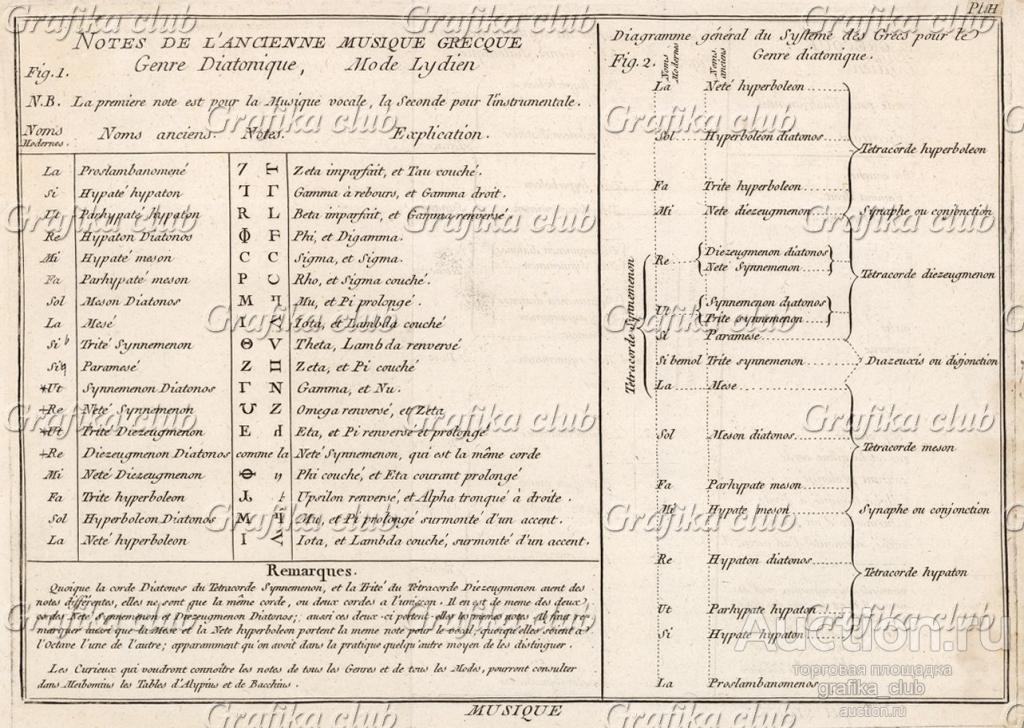 Pl. H
NOTES DE L'ANCIENNE MUSIQUE GRECQUE
Genre Diatonique, Mode Lydien
Fig. 1.
N.B. La premiere note est pour la Musique vocale, la Seconde pour l'instrumentale.
Noms Modernes. Noms anciens. Notes. Explication.
La Proslambanomené Zeta imparfait, et Tau couché.
Si Hypaté hypaton Gamma à rebours, et Gamma droit.
Ut Parhypaté hypaton R L Beta imparfait, et Gamma renversé
Re Hypaton Diatonos Φ F Phi, et Digamma.
Mi Hypaté meson C C Sigma, et Sigma.
Fa Parhypaté meson P Ʊ Rho, et Sigma couché.
Sol Meson Diatonos M Mu, et Pi prolongé.
La Mesé I Iota, et Lambda couché
Si b Trité Synnemenon Θ V Theta, Lambda renversé
Si ♮ Paramesé Z Zeta, et Pi couché
*Ut Synnemenon Diatonos Γ N Gamma, et Nu.
+Re Neté Synnemenon Ʊ Z Omega renversé, et Zeta
*Ut Trité Diezeugmenon E Eta, et Pi renversé et prolongé
+Re Diezeugmenon Diatonos comme la Neté Synnemenon, qui est la même corde
Mi Neté Diezeugmenon Phi couché, et Eta courant prolongé
Fa Trite hyperboleon Upsilon renversé, et Alpha tronqué à droite.
Sol Hyperboleon Diatonos M Mu, et Pi prolongé surmonté d'un accent.
La Neté hyperboleon I Iota, et Lambda couché, surmonté d'un accent.
Remarques.
Quoique la corde Diatonos du Tetracorde Synnemenon, et la Trité du Tétracorde Diezeugmenon aient des
notes différentes, elles ne sont que la même corde, ou deux cordes a l'unisson. Il en est de meme des deux
cordes Neté Synnemenon et Diezeugmenon Diatonos; aussi ces deux-ci portent-elles les mêmes notes. Il faut re-
marquer aussi que la Mese et la Nete hyperboleon portent la meme note pour le vocal, quoiqu'elles soient à
l'Octave l'une de l'autre; apparamment qu'on avoit dans la pratique quelqu'autre moyen de les distinguer.
Les Curieux qui voudront connoître les notes de tous les Genres et de tous les Modes, pourront consulter
dans Meibomius les Tables d'Alypius et de Bacchius.
Diagramme général du Systeme des Grecs pour le
Genre diatonique.
Fig. 2. Noms Modernes Noms anciens
La Neté hyperboleon
Sol Hyperboleon diatonos
Tetracorde hyperboleon
Fa Trite hyperboleon
Mi Nete diezeugmenon Synaphe ou conjonction
Re Diezeugmenon diatonos
Neté Synnemenon
Tetracorde diezeugmenon
Ut Synnemenon diatonos
Trite synnemenon
Si Paramese
Si bemol Trite synnemenon Diazeuxis ou disjonction
La Mese
Tetracorde Synnemenon
Sol Meson diatonos
Tetracorde meson
Fa Parhypate meson
Mi Hypate meson Synaphe ou conjonction
Re Hypaton diatonos
Tetracorde hypaton
Ut Parhypate hypaton
Si Hypate hypaton
La Proslambanomenos
MUSIQUE
Grafika club
Auction.ru
торговая площадка
grafika_club
auction.ru